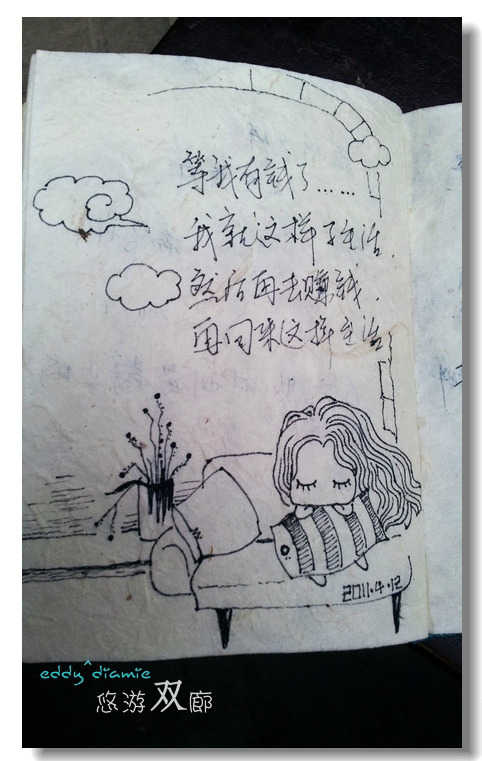 等我有钱了……
我就这样子生活.
然后再去赚钱.
再回来这样生活
2011.4.12
eddy^diamie
悠游双廊